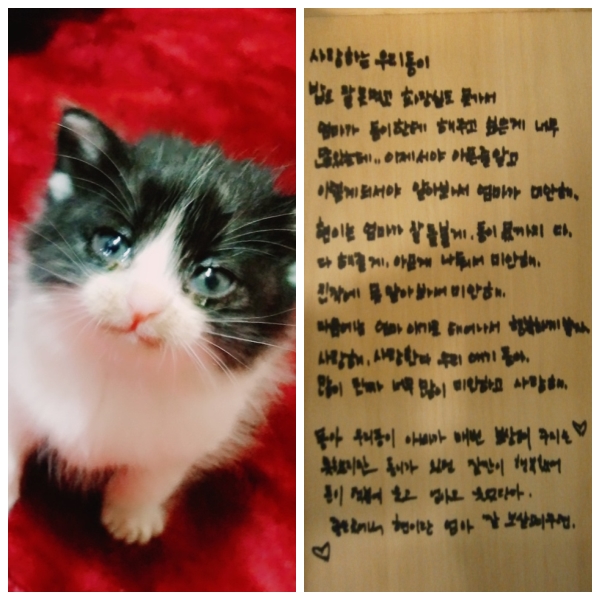 사랑하는 우리동이
밥도 잘 못먹고 화장실도 못가서
엄마가 동이한테 해주고 싶은게 너무
많았는데.. 이제서야 아픈줄알고
이렇게되서야 알아봐서 엄마가 미안해.
현이는 엄마가 잘 돌볼게. 동이 몫까지 다.
다 해줄게. 아프게 나둬서 미안해.
진작에 못 알아봐서 미안해.
다음에는 엄마 아기로 태어나서 행복하게 살자.
사랑해. 사랑한다 우리 애기 동아.
많이 진짜 너무 많이 미안하고 사랑해.
동아 우리동이 아빠가 매번
못했지만 동이가 있던 순간이 행복했어
동이 덕분에 웃고
현이랑 엄마 잘